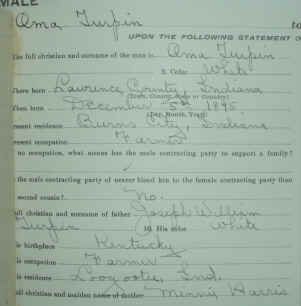 MALE
Oma Turpin
UPON THE FOLLOWING STATEMENT O
The full christian and surname of the man is Oma Turpin
2. Color White
Where born Lawrence County, Indiana
(Town, County, State or Country)
When born December 5th 1895
(Day, Month, Year)
resent residence Burns City, Indiana
resent occupation Farmer
no occupation, what means has the male contracting party to support a family?
the male contracting party of nearer blood kin to the female contracting party than
second cousin? No.
full christian and surname of father Joseph William
Turpin 10. His color White
is birthplace Kentucky
is occupation Farmer
is residence Loogootee, Ind.
ull christian and maiden name of mother Minnie Harris